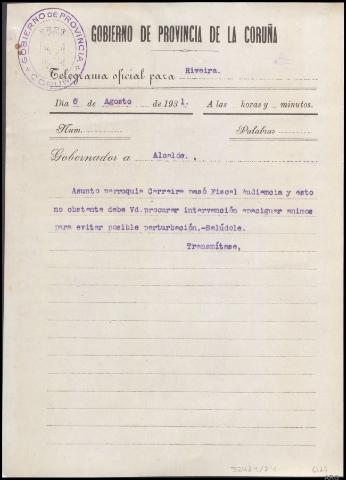 GOBIERNO DE PROVINCIA
CORUÑA
GOBIERNO DE PROVINCIA DE LA CORUÑA
Telegrama oficial para Riveira.
Día 6 de Agosto de 1931. A las horas y minutos.
Núm. Palabras
Gobernador a Alcalde.
Asunto parroquia Carreira pasó Fiscal Audiencia y esto
no obstante debe Vd. procurar intervención apaciguar animos
para evitar posible perturbación.-Salúdole.
Transmítase,